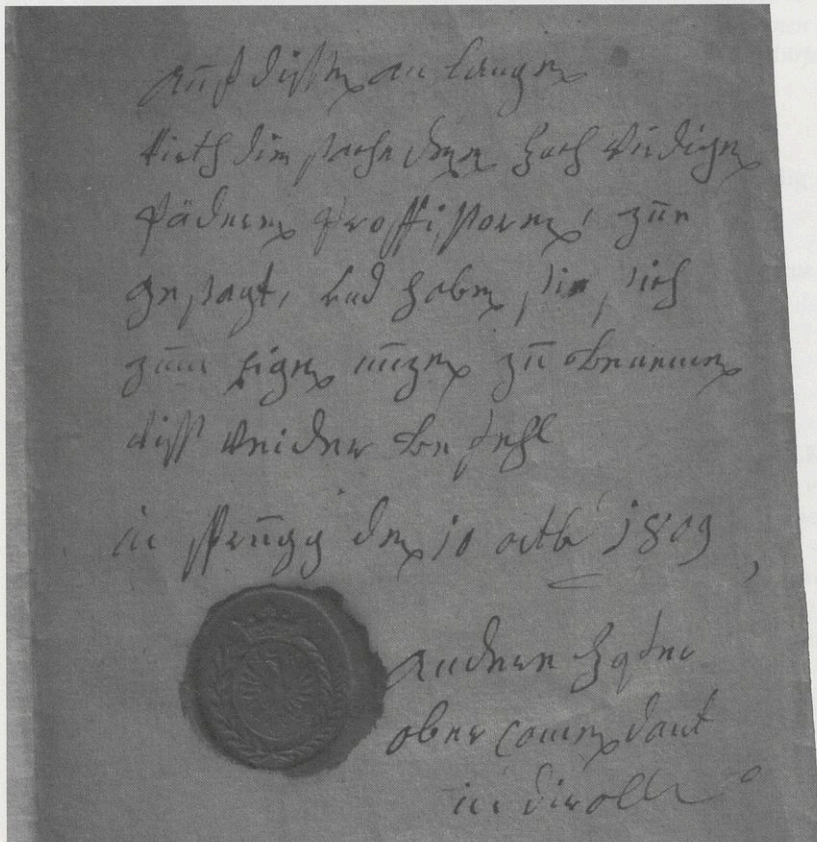 auf dissen an langen
Wirth dem sache denen hoch Wirdigen
Pädteren Proffissoren, zue
gesagt, und haben sie sich
zum Eigen nuzen zu
diss Weider be fehl
in Prugg den 10 octb 1809,
andere Hofer
ober comendant
in diroll